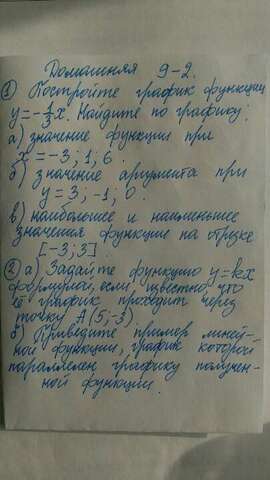 Домашняя 9-2.
① Постройте график функции
y = -1/3 x. Найдите по графику:
а) значение функции при
x = -3; 1; 6.
б) значение аргумента при
y = 3; -1; 0.
в) наибольшее и наименьшее
значения функции на отрезке
[-3; 3].
② а) Задайте функцию y = kx
формулой, если известно, что
её график проходит через
точку A(5; -3)
б) Приведите пример линей-
ной функции, график которой
параллелен графику получен-
ной функции.